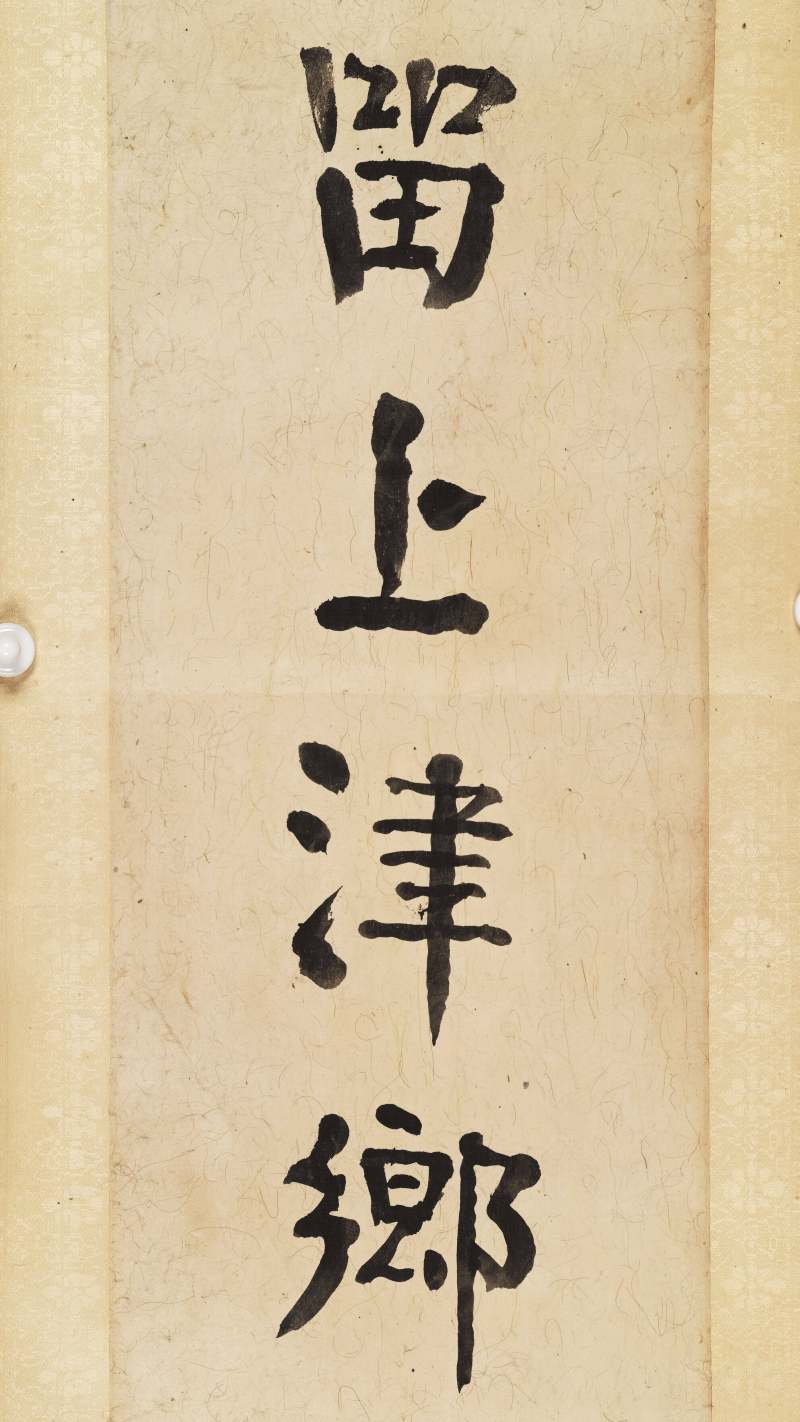 留上津鄉